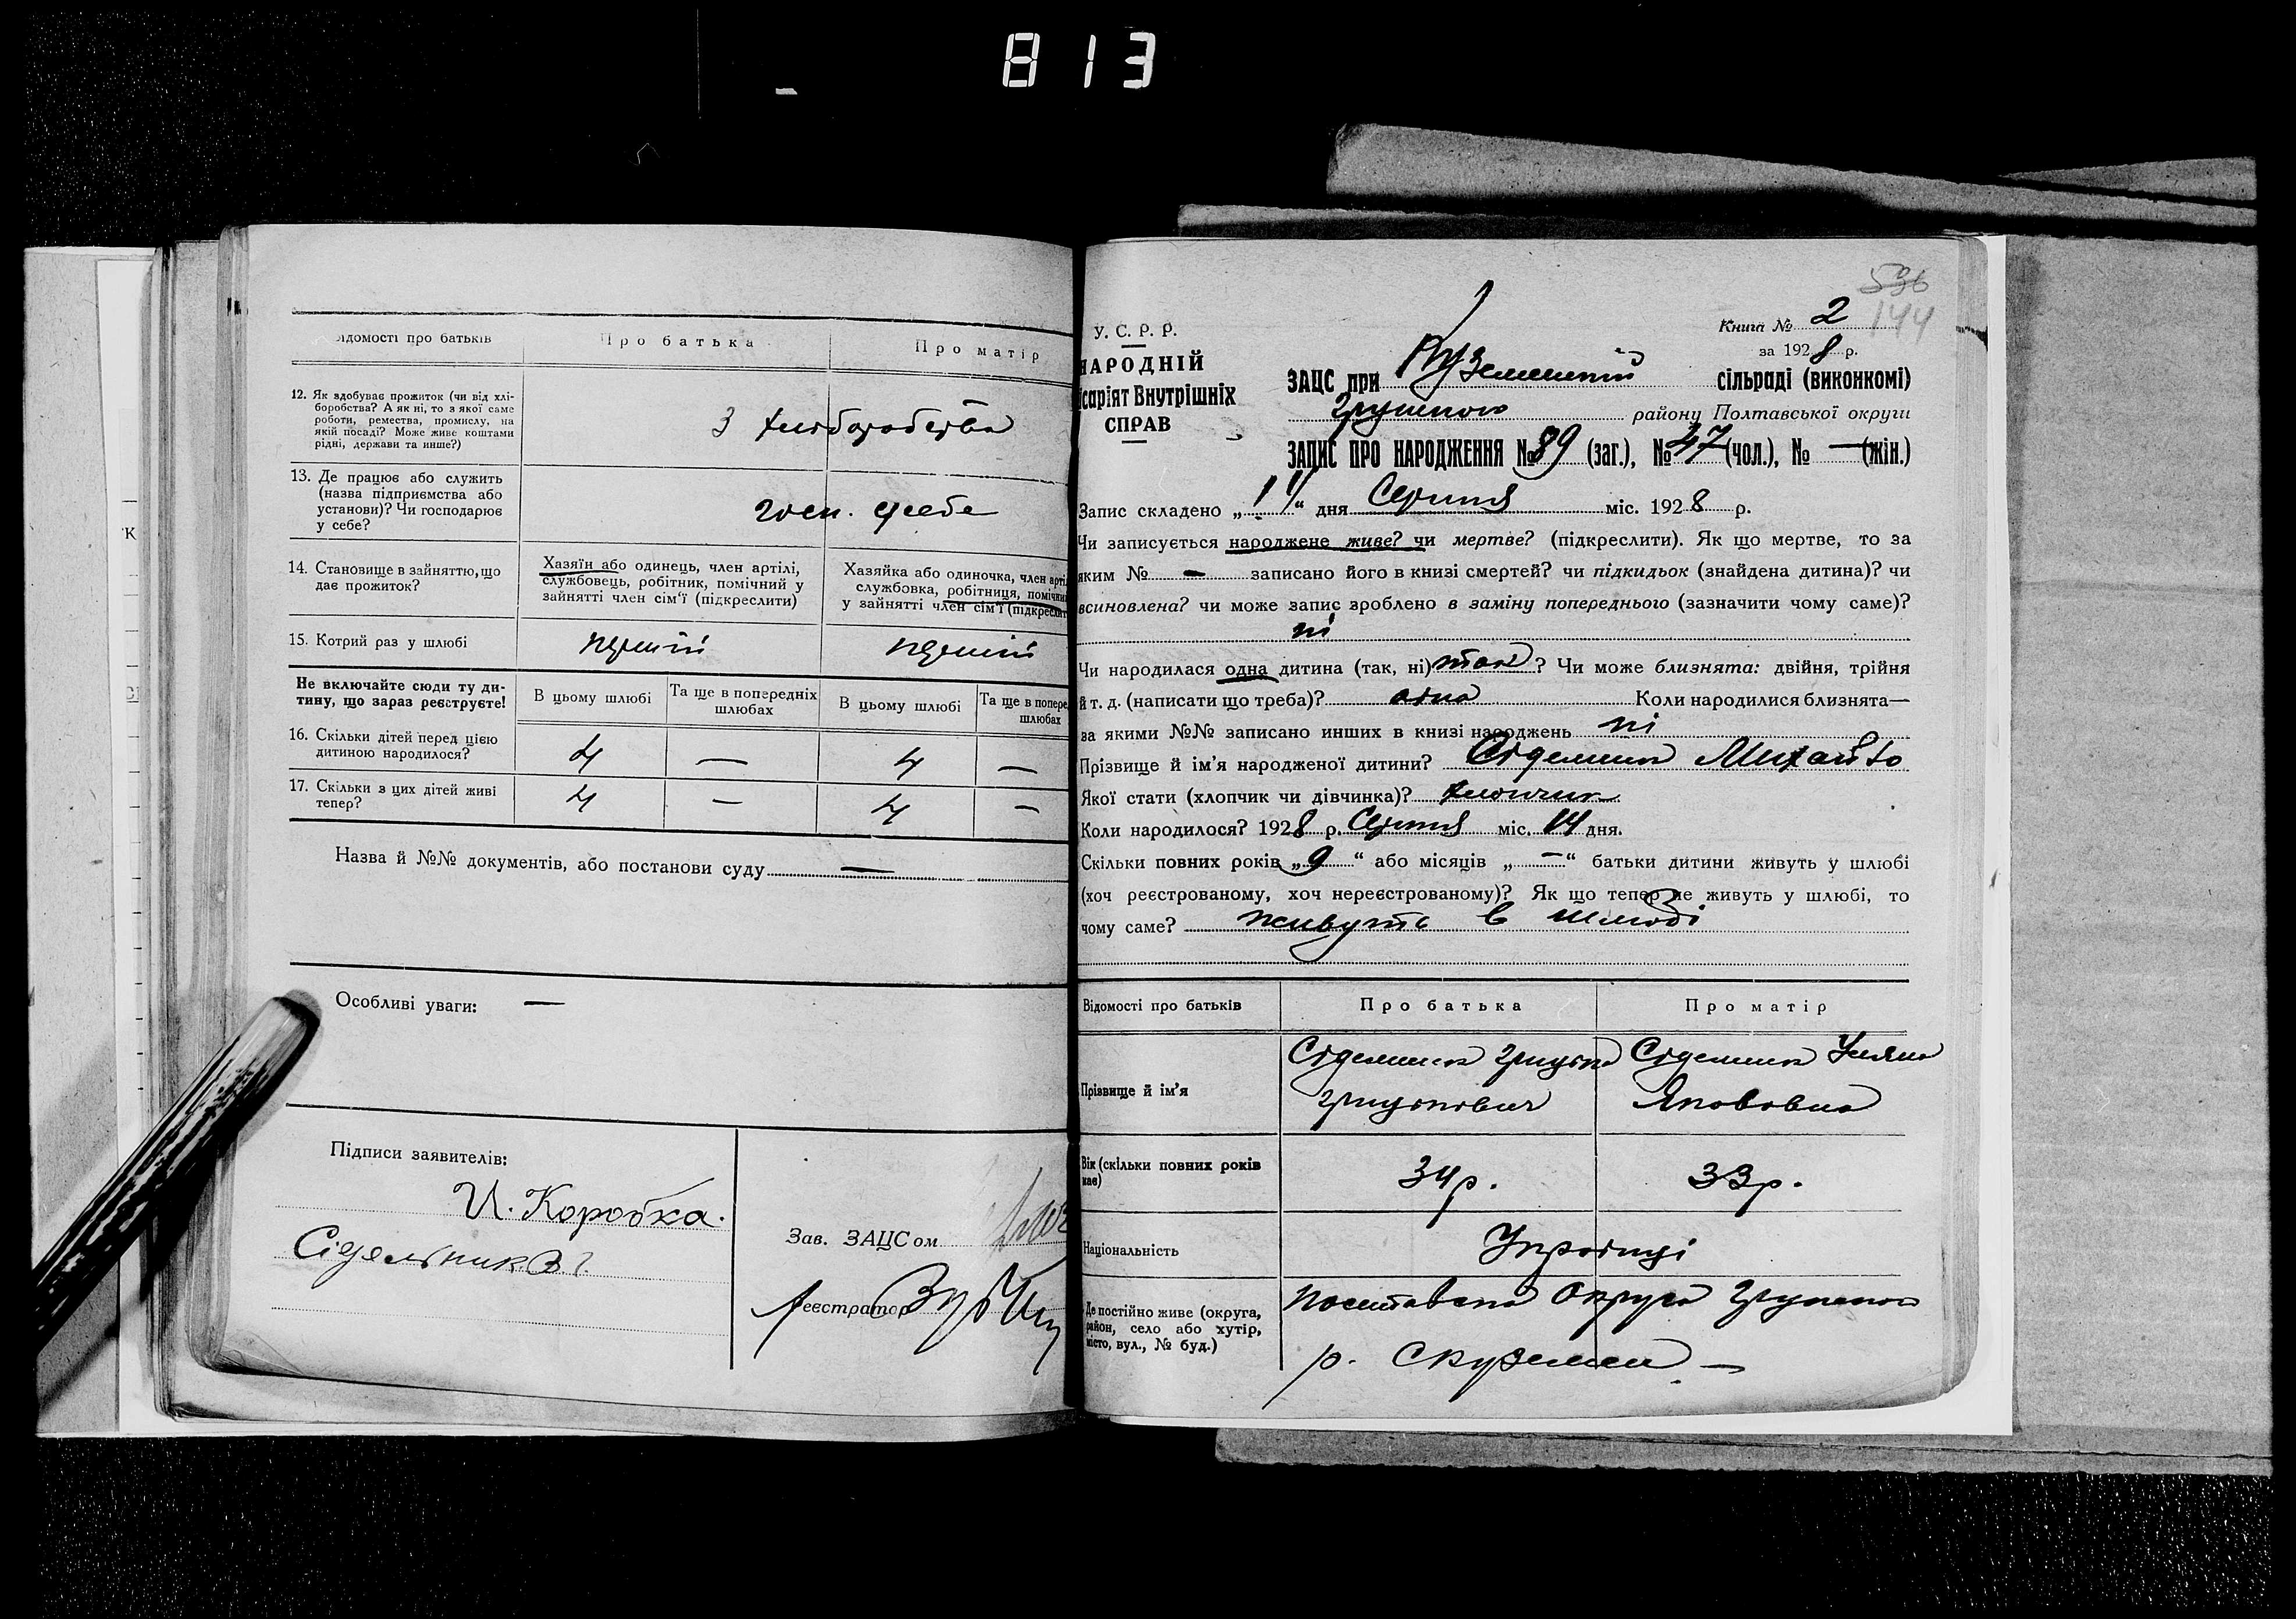 813
Відомості про батьків
Про батька
Про матір
12. Як здобуває прожиток (чи від хлі-
боробства? А як ні, то з якої саме
роботи, ремества, промислу, на
якій посаді? Може живе коштами
рідні, держави та инше?)
З хліборобства
13. Де працює або служить
(назва підприємства або
установи)? Чи господарює
у себе?
госп. у себе
14. Становище в зайняттю, що
дає прожиток?
Хазяїн або одинець, член артілі,
службовець, робітник, помічний у
зайнятті член сім'ї (підкреслити)
Хазяйка або одиночка, член арті
службовка, робітниця, помічни
у зайнятті член сім'ї (підкреслит
15. Котрий раз у шлюбі
перший
перший
Не включайте сюди ту ди-
тину, що зараз реєструєте!
В цьому шлюбі
Та ще в попередніх
шлюбах
В цьому шлюбі
Та ще в попере
шлюбах
16. Скільки дітей перед цією
дитиною народилося?
4 — 4 —
17. Скільки з цих дітей живі
тепер?
4 — 4 —
Назва й №№ документів, або постанови суду —
Особливі уваги: —
Підписи заявителів:
И. Коробка.
Сідельник
Зав. ЗАЦСом
реєстратор
536
144
У. С. Р. Р.
НАРОДНІЙ
ісаріят Внутрішніх
СПРАВ
Книга № 2
за 1928 р.
ЗАЦС при Куземенській сільраді (виконкомі)
Грунсько району Полтавської округи
ЗАПИС ПРО НАРОДЖЕННЯ № 89 (заг.), № 47 (чол.), № — (жін.)
Запис складено „ “ дня Серпня міс. 1928 р.
Чи записується народжене живе? чи мертве? (підкреслити). Як що мертве, то за
яким № — записано його в книзі смертей? чи підкидьок (знайдена дитина)? чи
всиновлена? чи може запис зроблено в заміну попереднього (зазначити чому саме)?
ні
Чи народилася одна дитина (так, ні) так? Чи може близнята: двійня, трійня
й т. д. (написати що треба)? одна Коли народилися близнята—
за якими №№ записано инших в книзі народжень ні
Прізвище й ім'я народженої дитини? Сідельник Михайло
Якої стати (хлопчик чи дівчинка)? хлопчик
Коли народилося? 1928 р. Серпня міс. 14 дня.
Скільки повних років „9“ або місяців „—“ батьки дитини живуть у шлюбі
(хоч реєстрованому, хоч нереєстрованому)? Як що тепер не живуть у шлюбі, то
чому саме? живуть в шлюбі
Відомості про батьків
Про батька
Про матір
Прізвище й ім'я
Сідельник Грицько
Грицькович
Сідельник Уляна
Якововна
Вік (скільки повних років
має)
34 р.
33 р.
Національність
Українці
Де постійно живе (округа,
район, село або хутір,
місто, вул., № буд.)
Полтавська Округа Грунсько
р. С Куземен —